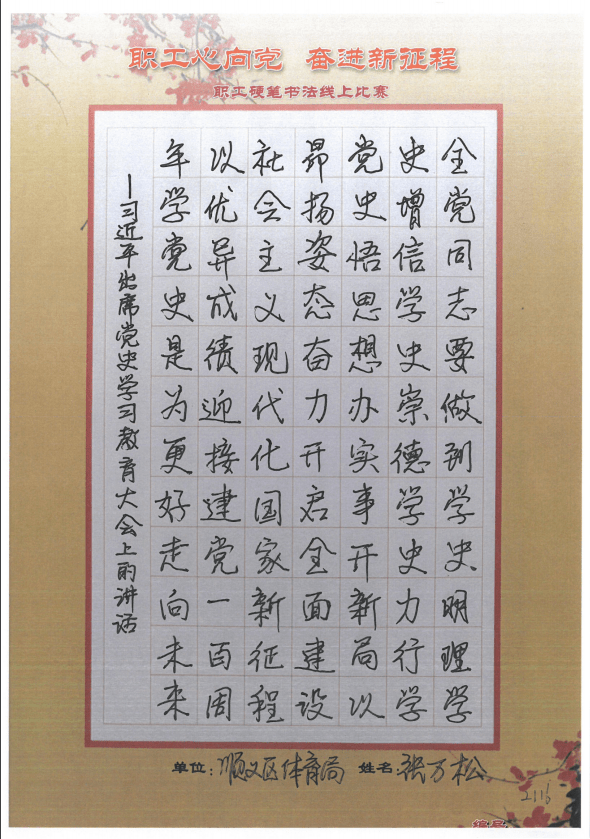 职工心向党 奋进新征程
职工硬笔书法线上比赛
全党同志要做到学史明理学
史增信学史崇德学史力行学
党史悟思想办实事开新局以
昂扬姿态奋力开启全面建设
社会主义现代化国家新征程
以优异成绩迎接建党一百周
年学党史是为更好走向未来
—习近平出席党史学习教育大会上的讲话
单位：顺义区体育局 姓名：张万松
2116